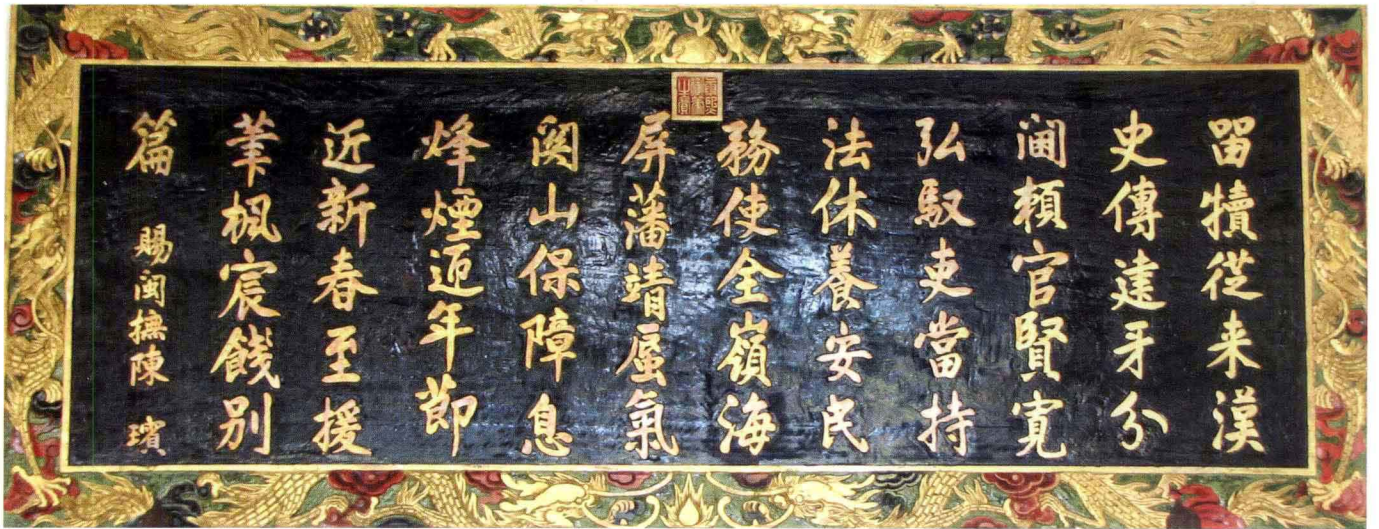 留犢從来漢
史傳建牙分
閫賴官賢寛
弘馭吏當持
法休養安民
務使全嶺海
屏藩靖蜃氣
関山保障息
烽煙迊年節
近新春至援
筆楓宸餞别
篇
賜閩撫陳璸